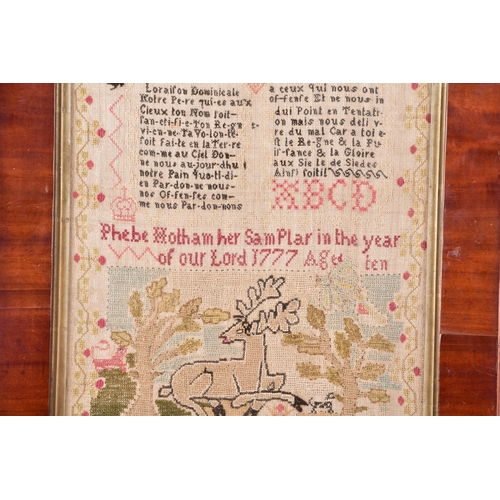 Loraison Dominicale
Notre Pe-re qui-es aux
Cieux ton Nom soit-
fan-cti-fi-e-Ton Re-gne
vi-en-ne-Ta Vo-lon-te-
foit fai-te en la Ter-re
com-me au Ciel Don-
ne nous au-jour-dhu i
notre Pain quo-ti-di-
en Par-don-ne nous-
nos Of-fen-fes com-
me nous Par-don-nons
a ceux qui nous ont
of-fenfe Et ne nous in
dui Point en Tentati
on mais nous deli v-
re du mal Car a toi e-
ft le Re-gne & la Pu
if-fance & la Gloire
aux Sie le de Siedes
Ainfi foitil
ABCD
Phebe Hotham her SamPlar in the year
of our Lord 1777 Aged ten